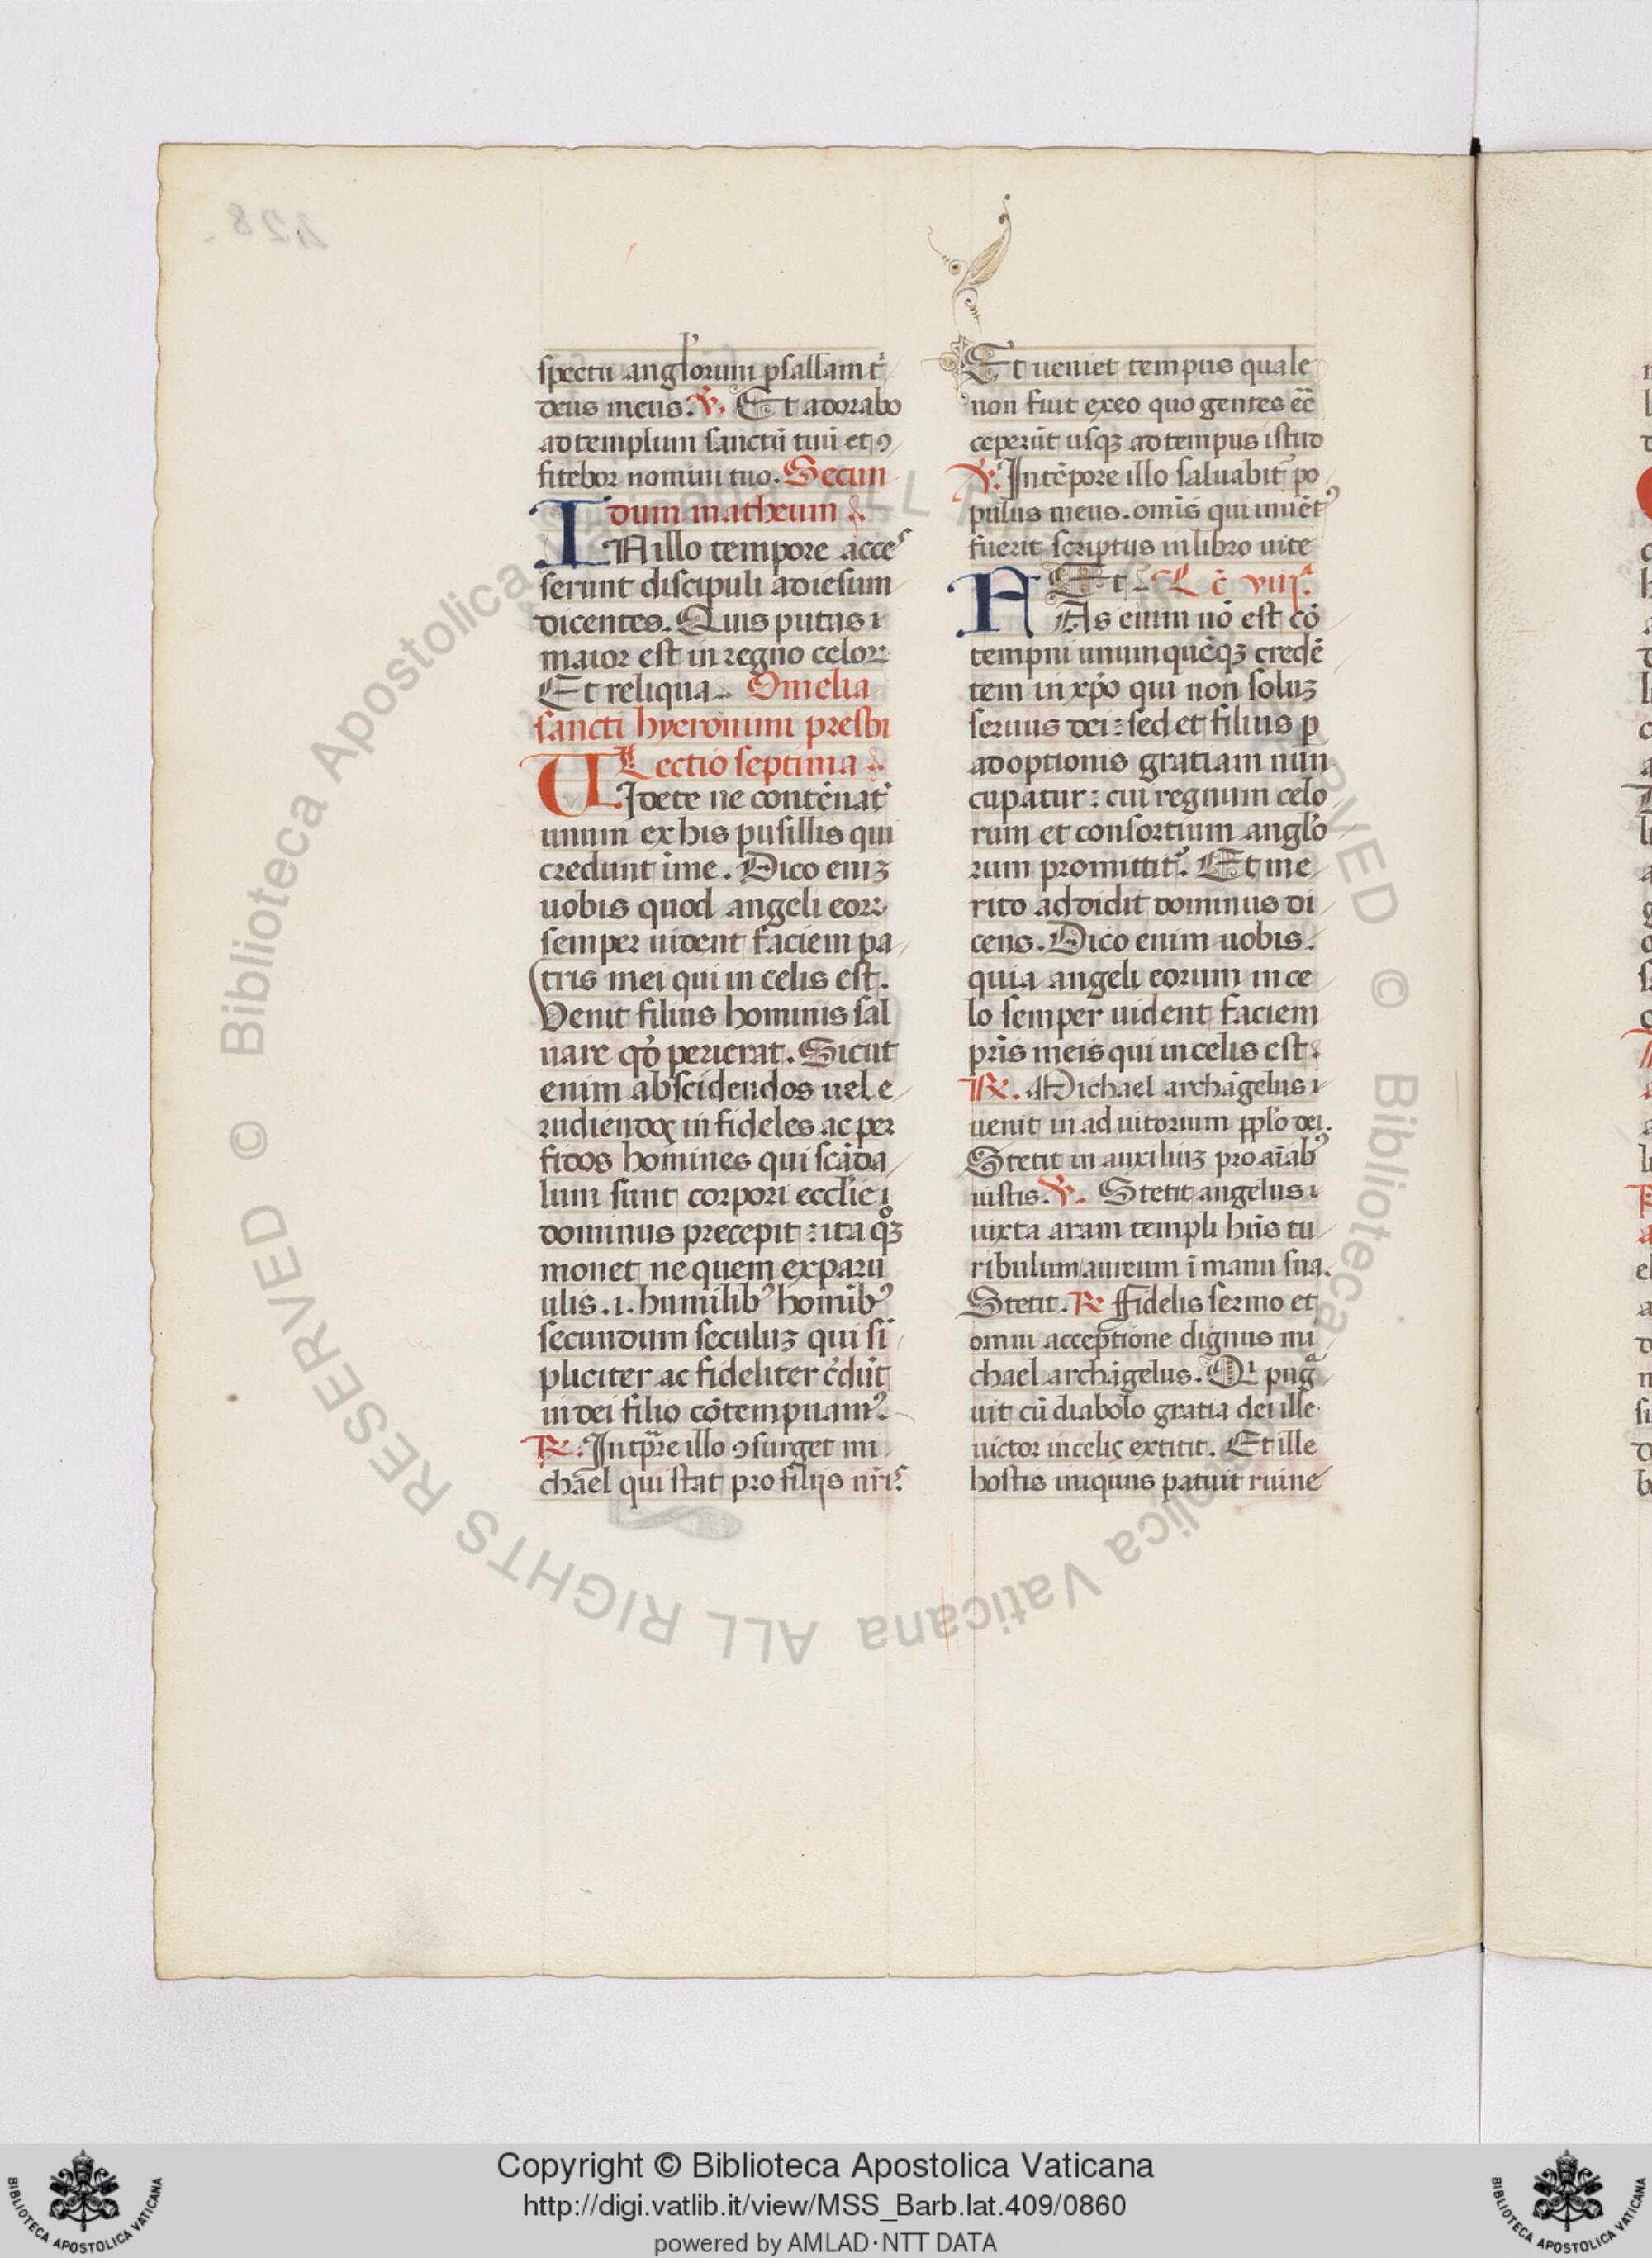 spectu anglorum psallam t'
deus meus. V. Et adorabo
ad templum sanctū tuū et ꝯ
fitebor nomini tuo. Secun
dum matheum
IN illo tempore acces
serunt discipuli ad iesum
dicentes. Quis putas
maior est in regno celoꝝ
Et reliqua. Omelia
sancti hyeronimi presbi
Lectio septima
Uidete ne contēnat'
unum ex his pusillis qui
credunt ī me. Dico eniꝫ
uobis quod angeli eoꝝ
semper uident faciem pa
tris mei qui in celis est.
Venit filius hominis sal
uare qđ perierat. Sicut
enim abscidendos uel e
rudiendos infideles ac per
fidos homines qui scāda
lum sunt corpori ecclīe
dominus precepit: ita qͦꝫ
monet ne quem ex paru
ulis .i. humilibꝰ homībꝰ
secundum seculuꝫ qui sī
pliciter ac fideliter c̄dūt
in dei filio cōtempnamꝰ.
R. In tp̄re illo ꝯsurget mi
chael qui stat pro filijs nr̄is
Et ueniet tempus quale
non fuit ex eo quo gentes eē
ceperūt usqꝫ ad tempus istud
V. In tēpore illo saluabit' po
pulus meus. omīs qui inuētꝰ
fuerit scriptus in libro uite
Et. Lc̄ viij.ª
NAs enim nō est cō
tempni unumquēqꝫ credē
tem in xp̄o qui non soluꝫ
seruus dei: sed et filius ꝑ
adoptionis gratiam nun
cupatur: cui regnum celo
rum et consortium anglo
rum promittit'. Et me
rito addidit dominus di
cens. Dico enim uobis.
quia angeli eorum in ce
lo semper uident faciem
pr̄is meis qui in celis est:
R. Michael archāgelus
uenit in adiutorium pp̄lo dei.
Stetit in auxiliuꝫ pro aīabꝰ
iustis. V. Stetit angelus
iuxta aram templi hn̄s tu
ribulum aureum ī manu sua.
Stetit. R Fidelis sermo et
omni acceptione dignus mi
chael archāgelus. Qi pugª
uit cū diabolo gratia dei ille
uictor in celis extitit. Et ille
hostis iniquus patuit ruine
428
Copyright © Biblioteca Apostolica Vaticana
http://digi.vatlib.it/view/MSS_Barb.lat.409/0860
powered by AMLAD·NTT DATA
BIBLIOTECA APOSTOLICA VATICANA
BIBLIOTECA APOSTOLICA VATICANA